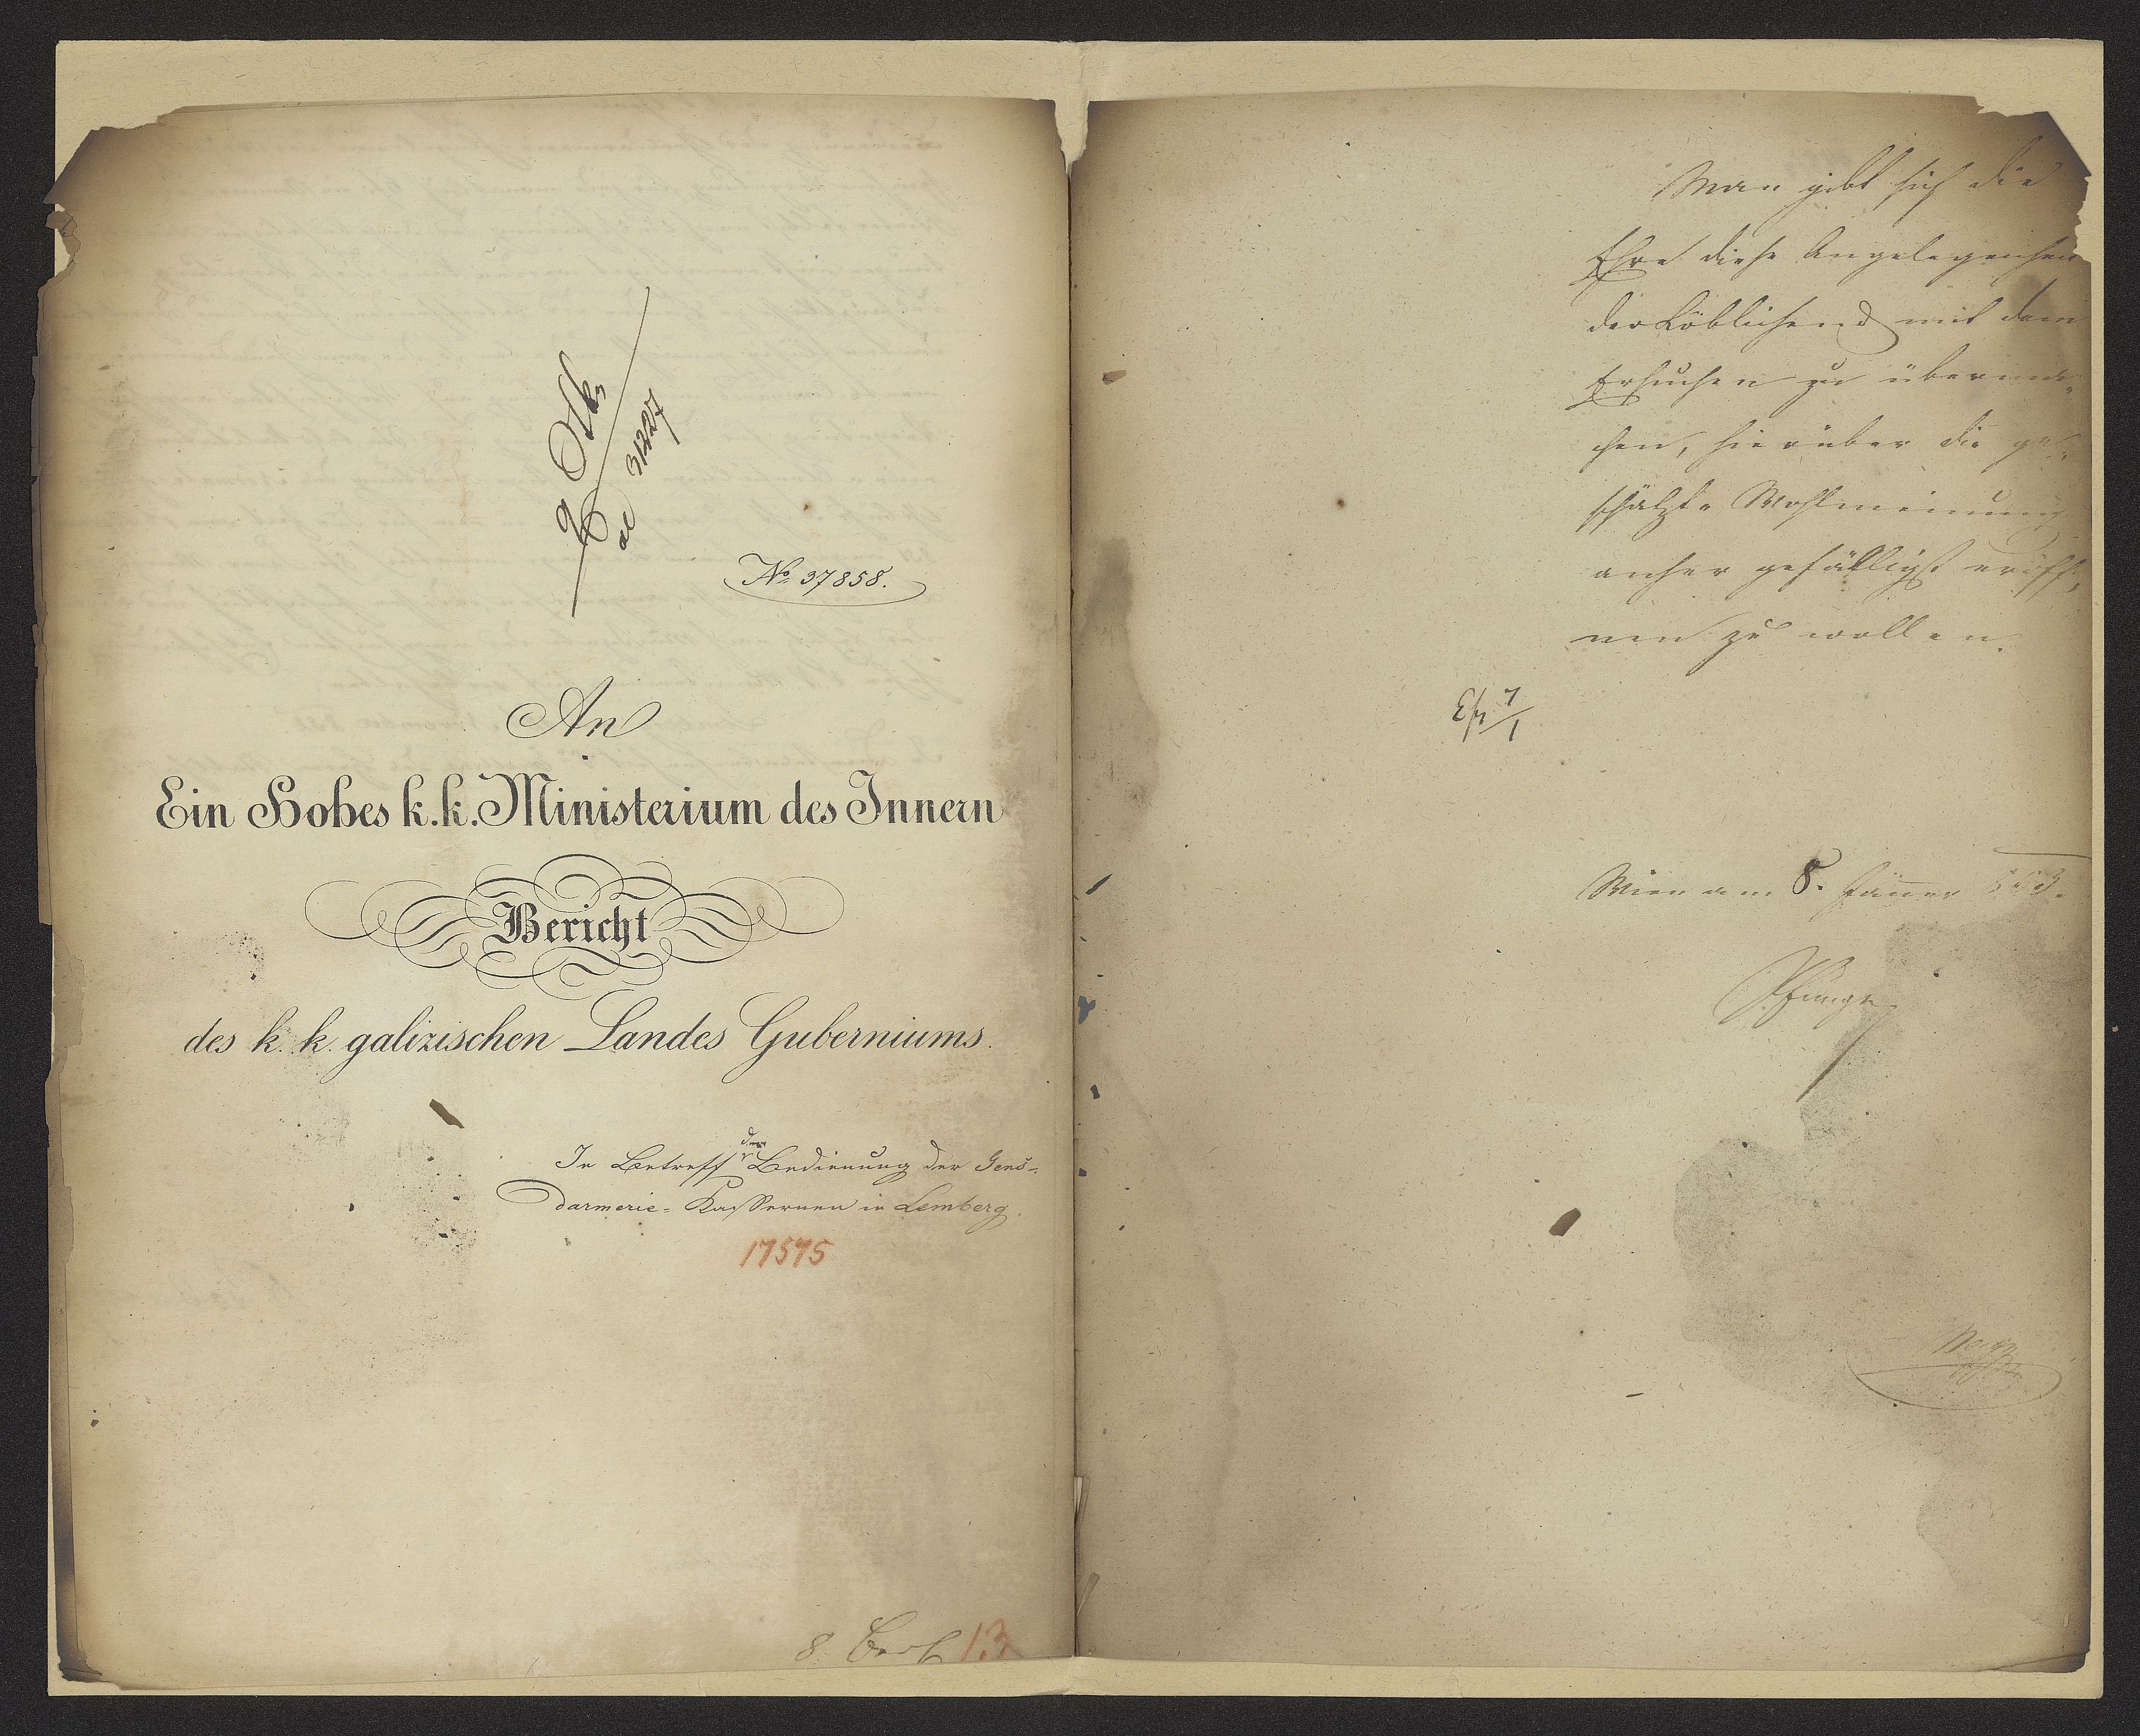 ad 31227
№ 37858.
An
Ein Hohes k. k. Ministerium des Innern
Bericht
des k. k. galizischen Landes Guberniums.
In Betreff der Bedienung der Gens-
darmerie-Kassernen in Lemberg.
17575
8 13
Man gibt sich die
Ehre diese Angelegenheit
der Löblichen mit dem
Ersuchen zu überma-
chen, hierüber die ge-
schätzte Wohlmeinung
anher gefälligst eröff-
nen zu wollen.
7/1
Wien am 8. Jänner 853.